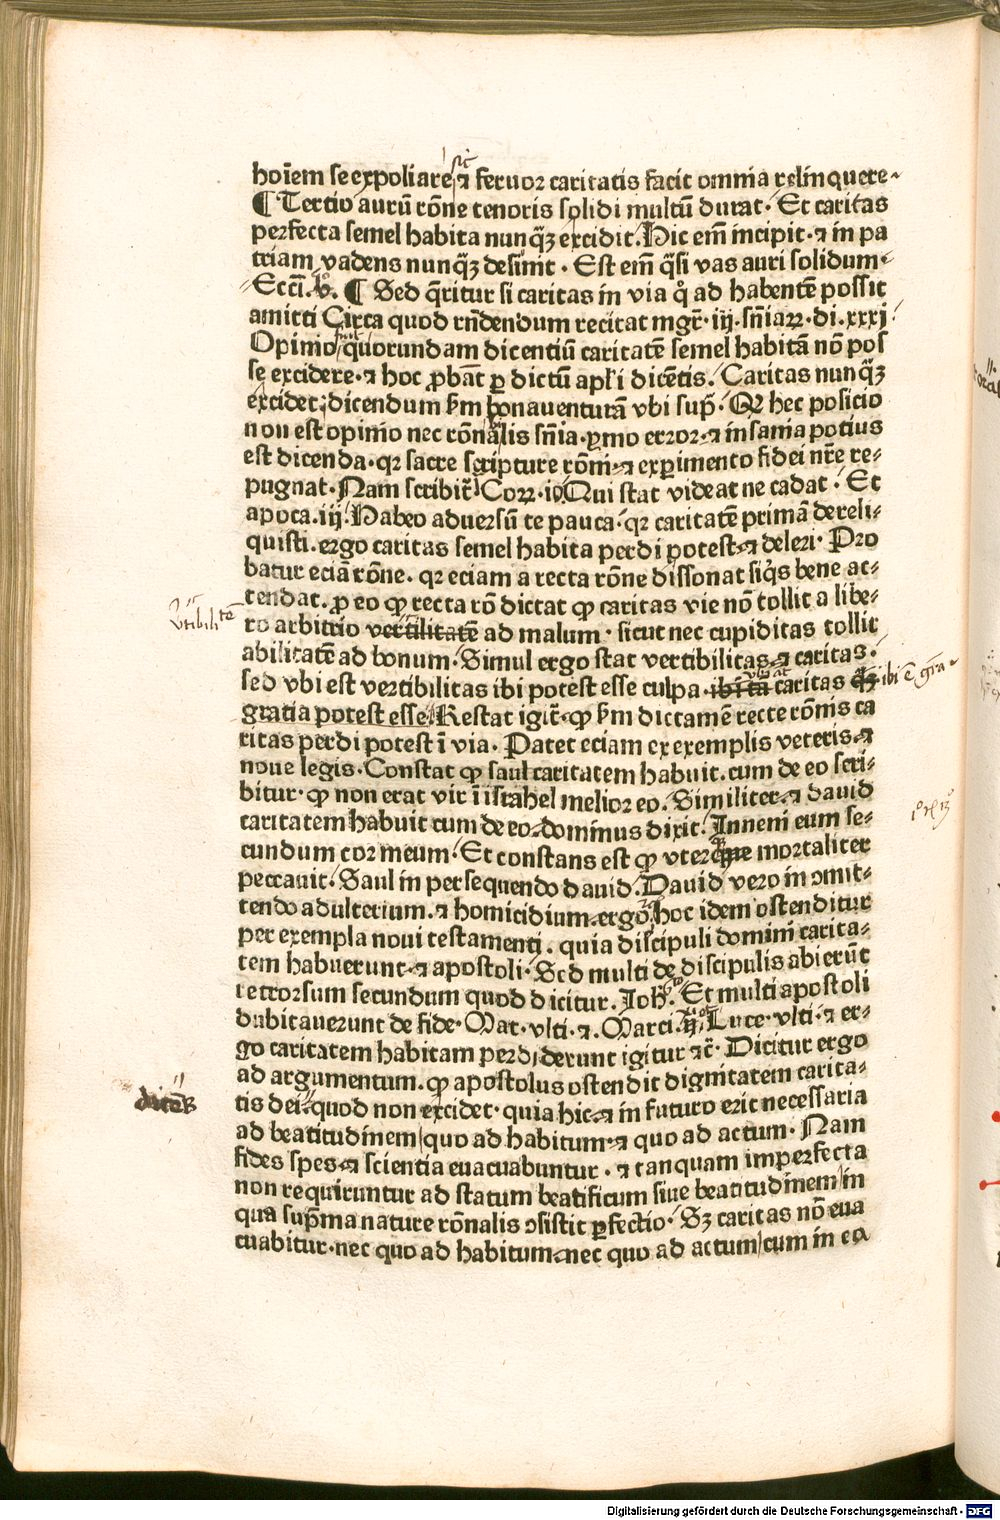 hoīem se expoliare sic ⁊ feruor caritatis facit omnia relinquere·
¶ Tertio aurū rōne tenoris solidi multū durat· Et caritas
perfecta semel habita nunq̄ꝫ excidit. Hic em̄ incipit·⁊ in pa
triam vadens nunq̄ꝫ desinit· Est em̄ q̄si vas auri solidum·
Eccī. ¶ Sed q̄ritur si caritas in via qͦ ad habentē possit
amitti Circa quod rn̄dendum recitat mgr̄· iij. sn̄iaꝝ· di. xxxj
Opinio quorundam dicentiū caritatē semel habitā nō pos
se excidere·⁊ hoc ꝓbāt ꝑ dictū apl'i dicētis. Caritas nunq̄ꝫ
excidet; dicendum ẜm bonauenturā vbi sup̄· Qꝛ hec posicio
non est opinio nec rōnalis sn̄ia· ymo error·⁊ insania potius
est dicenda· qꝛ sacre scripture rōni·⁊ experimento fidei nr̄e re-
pugnat· Nam scribit̄ Coꝝ. io. Qui stat videat ne cadat· Et
apoca. iij. Habeo aduersū te pauca· qꝛ caritatē primā dereli-
quisti. ergo caritas semel habita perdi potest·⁊ deleri· Pro
batur eciā rōne. qꝛ eciam a recta rōne dissonat siq̄s bene at-
tendat. ꝓ eo ꝙ recta rō dictat ꝙ caritas vie nō tollit a libe-
vtibilitē
ro arbitrio vertilitatē ad malum· sicut nec cupiditas tollit
abilitatē ad bonum· Simul ergo stat vertibilitas·⁊ caritas·
sed vbi est vertibilitas ibi potest esse culpa· ibi tā caritas qꝫ ibi ē gr̄a
gratia potest esse. Restat igit̄· ꝙ ẜm dictamē recte rōnis ca
ritas perdi potest ī via. Patet eciam ex exemplis veteris·⁊
noue legis· Constat ꝙ saul caritatem habuit. cum de eo scri-
bitur· ꝙ non erat vir ī israhel melior eo. Similiter·⁊ dauid
caritatem habuit cum de eo dominus dixit. Inueni eum se-
cundum cor meum· Et constans est ꝙ vterque mortaliter
peccauit· Saul in persequendo dauid. Dauid vero in ɔmit-
tendo adulterium.⁊ homicidium. ergo hoc idem ostenditur
per exempla noui testamenti. quia discipuli domini carita-
tem habuerunt·⁊ apostoli· Sed multi de discipulis abierūt
retrorsum secundum quod dicitur. Joh̄. Et multi apostoli
dubitauerunt de fide· Mat· vlti·⁊. Marci. Luce· vlti·⁊ er-
go caritatem habitam perdiderunt igitur ⁊c̄· Dicitur ergo
ad argumentum. ꝙ apostolus ostendit dignitatem carita-
tis dei· quod non excidet· quia hic·⁊ in futuro erit necessaria
ad beatitudinem quo ad habitum·⁊ quo ad actum· Nam
fides spes·⁊ scientia euacuabuntur·⁊ tanquam imperfecta
non requiruntur ad statum beatificum siue beatitudinem in
qua sup̄ma nature rōnalis ɔsistit ꝑfectio· Sꝫ caritas nō eua
cuabitur· nec quo ad habitum· nec quo ad actum cum in ea
Digitalisierung gefördert durch die Deutsche Forschungsgemeinschaft - DFG